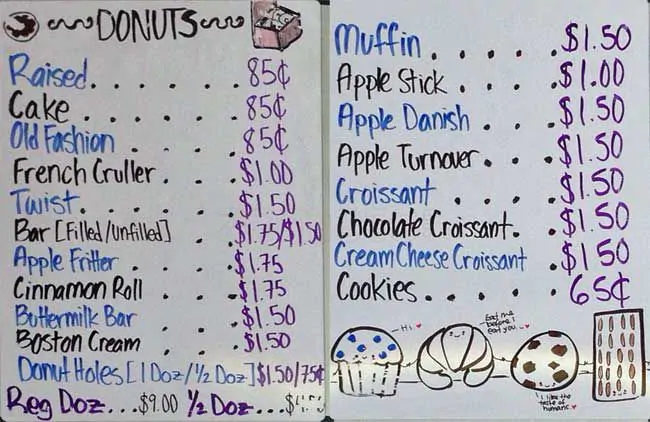 DONUTS
Raised. . . . . . 85¢
Cake . . . . . . 85¢
Old Fashion . . . . 85¢
French Cruller . . . $1.00
Twist. . . . . . $1.50
Bar [Filled/unfilled] . $1.75/$1.50
Apple Fritter . . . $1.75
Cinnamon Roll . . . $1.75
Buttermilk Bar . . $1.50
Boston Cream . . $1.50
Donut Holes [1 Doz/½ Doz] $1.50/75¢
Reg Doz...$9.00 ½ Doz...
Muffin . . . . . $1.50
Apple Stick . . . . $1.00
Apple Danish . . . $1.50
Apple Turnover . . . $1.50
Croissant . . . . $1.50
Chocolate Croissant. . $1.50
Cream Cheese Croissant . $1.50
Cookies . . . . . 65¢
Hi
Eat me
before I
eat you
I like the
taste of
humans.